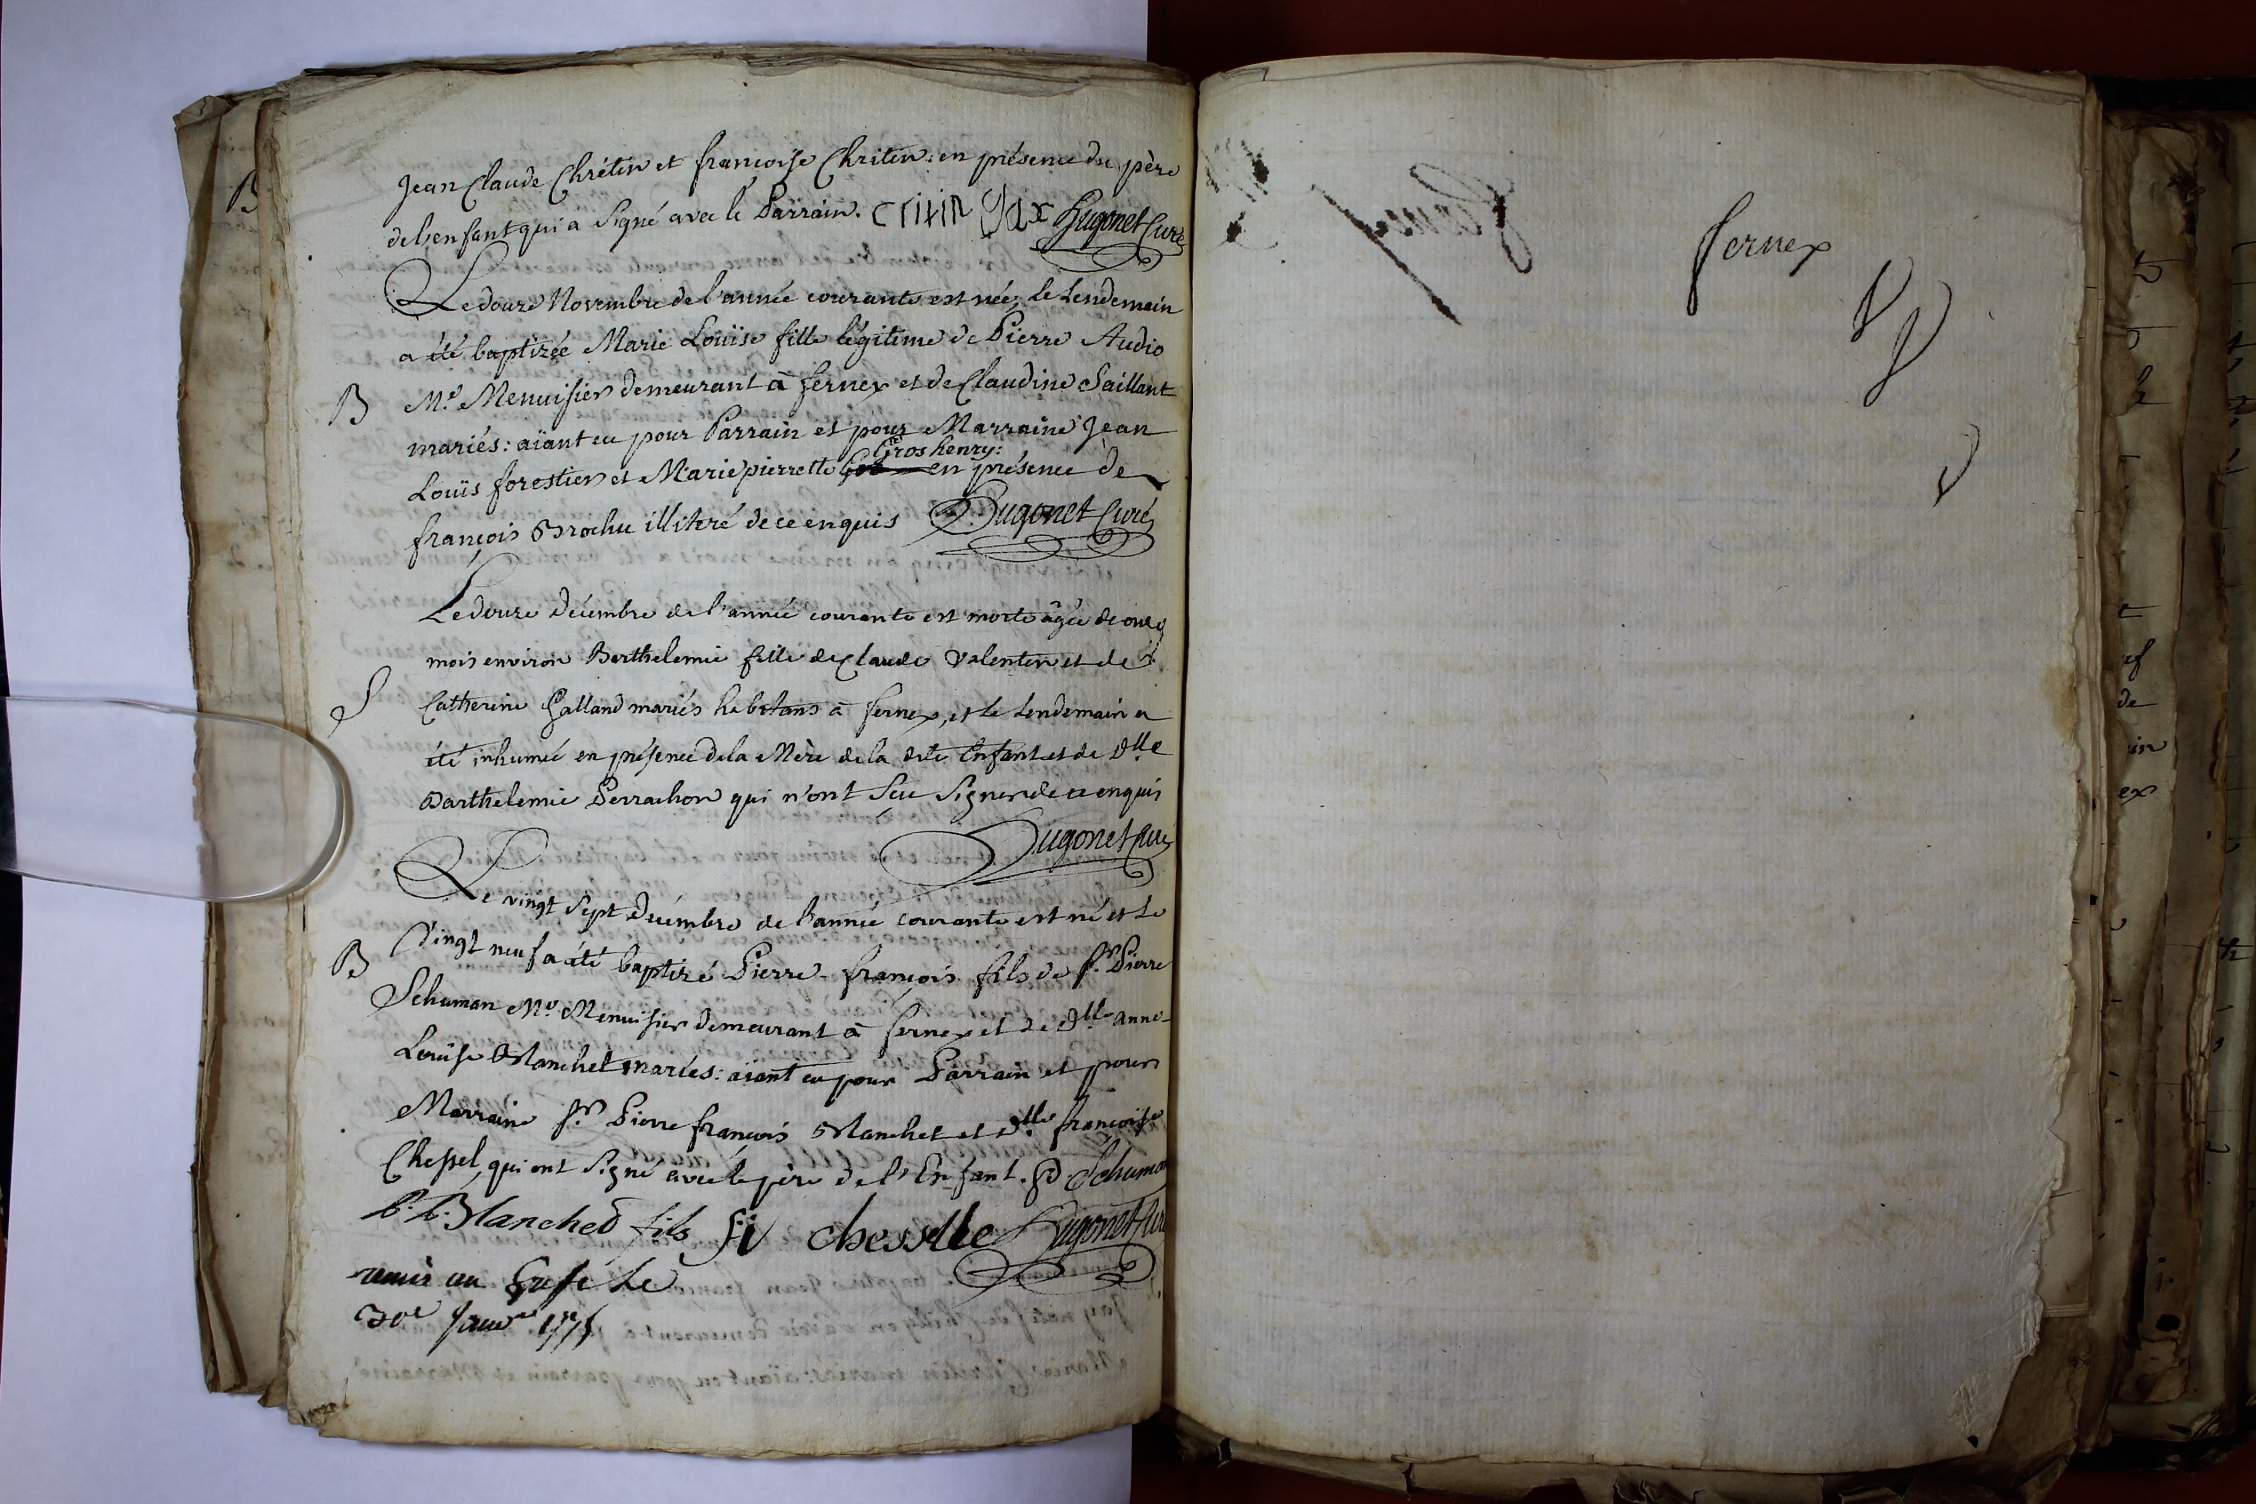 Jean Claude Chrétin et françoise Chritin: en présence du père
de l'enfant qui a Signé avec le Parrain. critin Hugonet Curé
Le douze Novembre de l'année courante est née, le Lendemain
a été baptizée Marie Loüise fille légitime de Pierre Audio
B Me. Menuisier demeurant à fernex et de Claudine Saillant
mariés: aïant eu pour Parrain et pour Marraine Jean
Gros henry:
Loüis forestier et Marie pierrette en présence de
françois Brochu illiteré de ce enquis Hugonet Curé
Le douze Décembre de l'année courante est morte âgée de onze
mois environ Barthelemie fille de Claude Valentin et de
S Catherine Galland mariés habitans à fernex, et le Lendemain a
été inhumée en présence de la Mère de la dite Enfant et de Dlle
Barthelemie Perrachon qui n'ont Scu Signer de ce enquis
Hugonet Curé
Le vingt Sept Décembre de l'année courante est né et le
B Vingt neuf a été baptizé Pierre-françois fils de Sr. Pierre
Schuman Me. Menuisier demeurant à fernex et de Dlle anne-
Loüise Blanchet mariés: aïant eu pour Parrain et pour
Marraine Sr. Pierre françois Blanchet et Dlle françoise
Chessel, qui ont Signé avec le père de l'Enfant. Schuman
Blanched fils chesselle Hugonet Curé
remis au Greffe le
30e Janvr
fernex